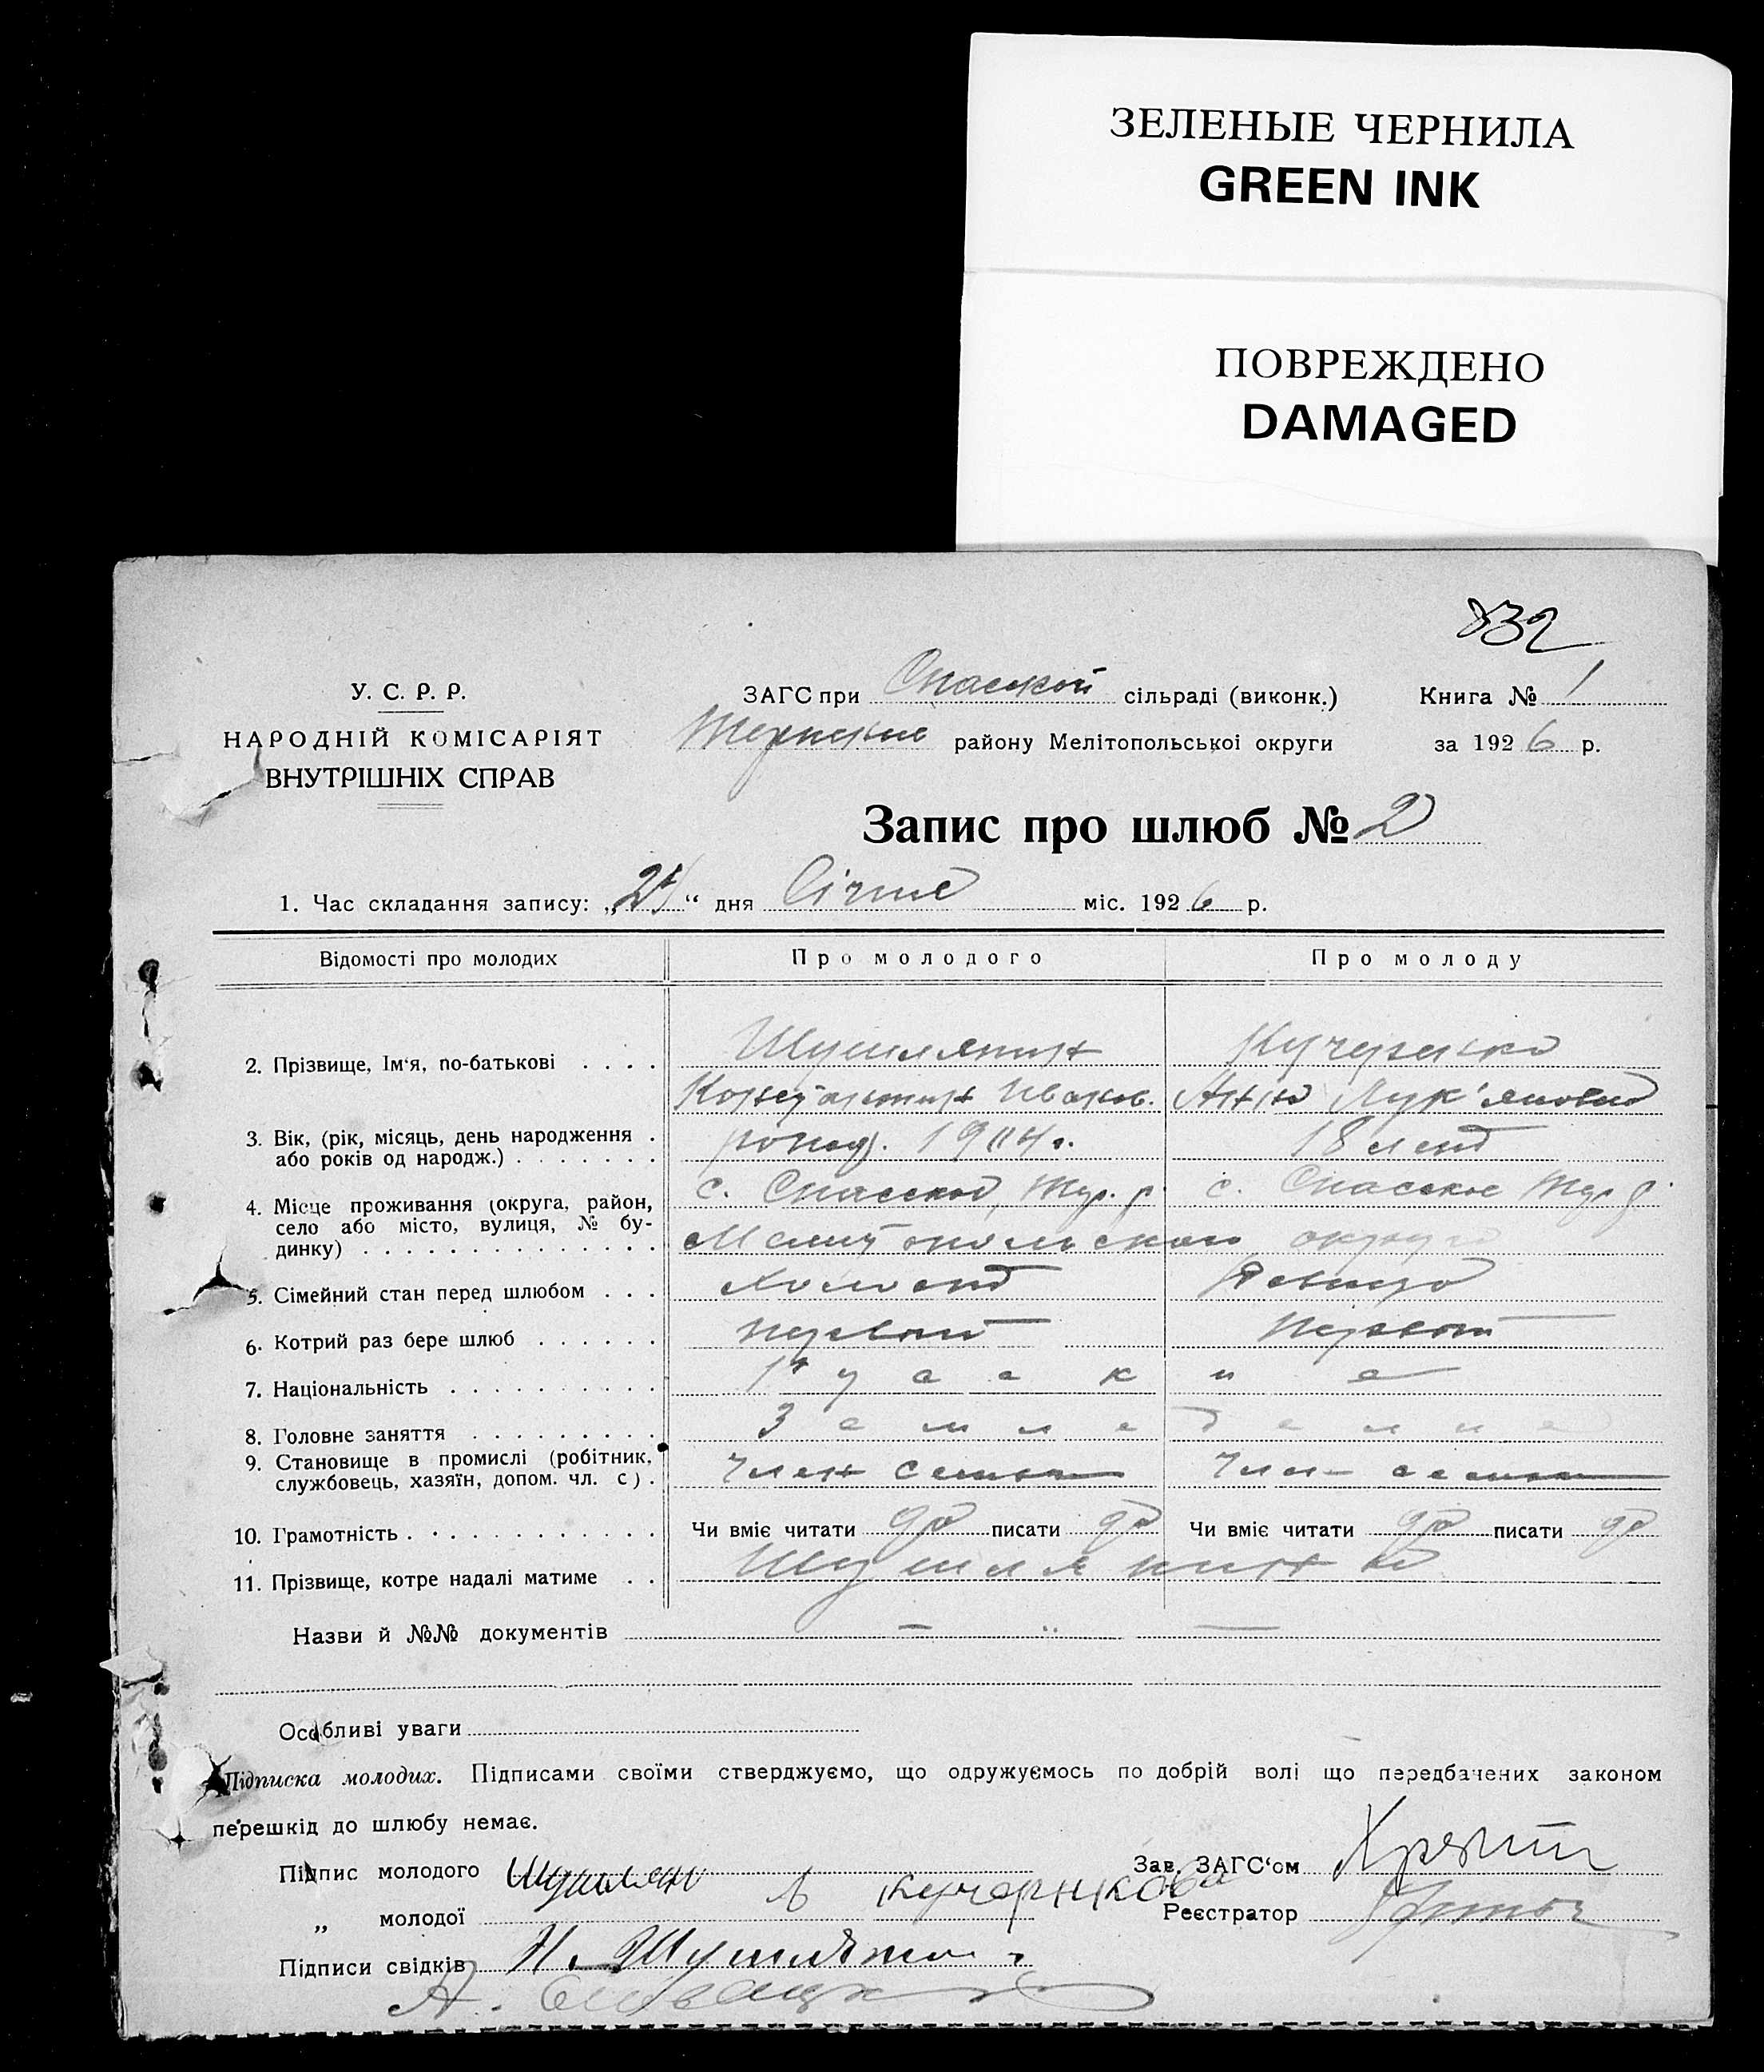 ЗЕЛЕНЫЕ ЧЕРНИЛА
GREEN INK
ПОВРЕЖДЕНО
DAMAGED
832
У. С. Р. Р.
НАРОДНІЙ КОМІСАРІЯТ
ВНУТРІШНІХ СПРАВ
ЗАГС при Спаской сільраді (виконк.) Книга № 1
району Мелітопольської округи за 1926 р.
Запис про шлюб № 2
1. Час складання запису: „ “ дня Січня міс. 1926 р.
Відомості про молодих Про молодого Про молоду
2. Прізвище, Ім‘я, по-батькові . . . . Шушлянин
Иванов. Анна Лук'яновна
3. Вік, (рік, місяць, день народження . або років од народж.) . . . . . . . 1904 г. 18 лет
4. Місце проживання (округа, район, село або місто, вулиця, № будинку) . . . . . . . . . . . . . . с. Спасское, с. Спасское
Мелитопольского округа
5. Сімейний стан перед шлюбом . . . Холост Девица
6. Котрий раз бере шлюб . . . . . . первый Первый
7. Національність . . . . . . . . . . Русские
8. Головне заняття . . . . . . . . . Земледелие
9. Становище в промислі (робітник, службовець, хазяїн, допом. чл. с) . Член семьи Член семьи
10. Грамотність . . . . . . . . . . . . Чи вміє читати да писати да Чи вміє читати да писати да
11. Прізвище, котре надалі матиме . . Шушлянина
Назви й №№ документів — „ —
Особливі уваги
Підписка молодих. Підписами своїми стверджуємо, що одружуємось по добрій волі що передбачених законом
перешкід до шлюбу немає.
Підпис молодого Шушлян Зав. ЗАГС‘ом
„ молодої Реєстратор
Підписи свідків Н.
А.